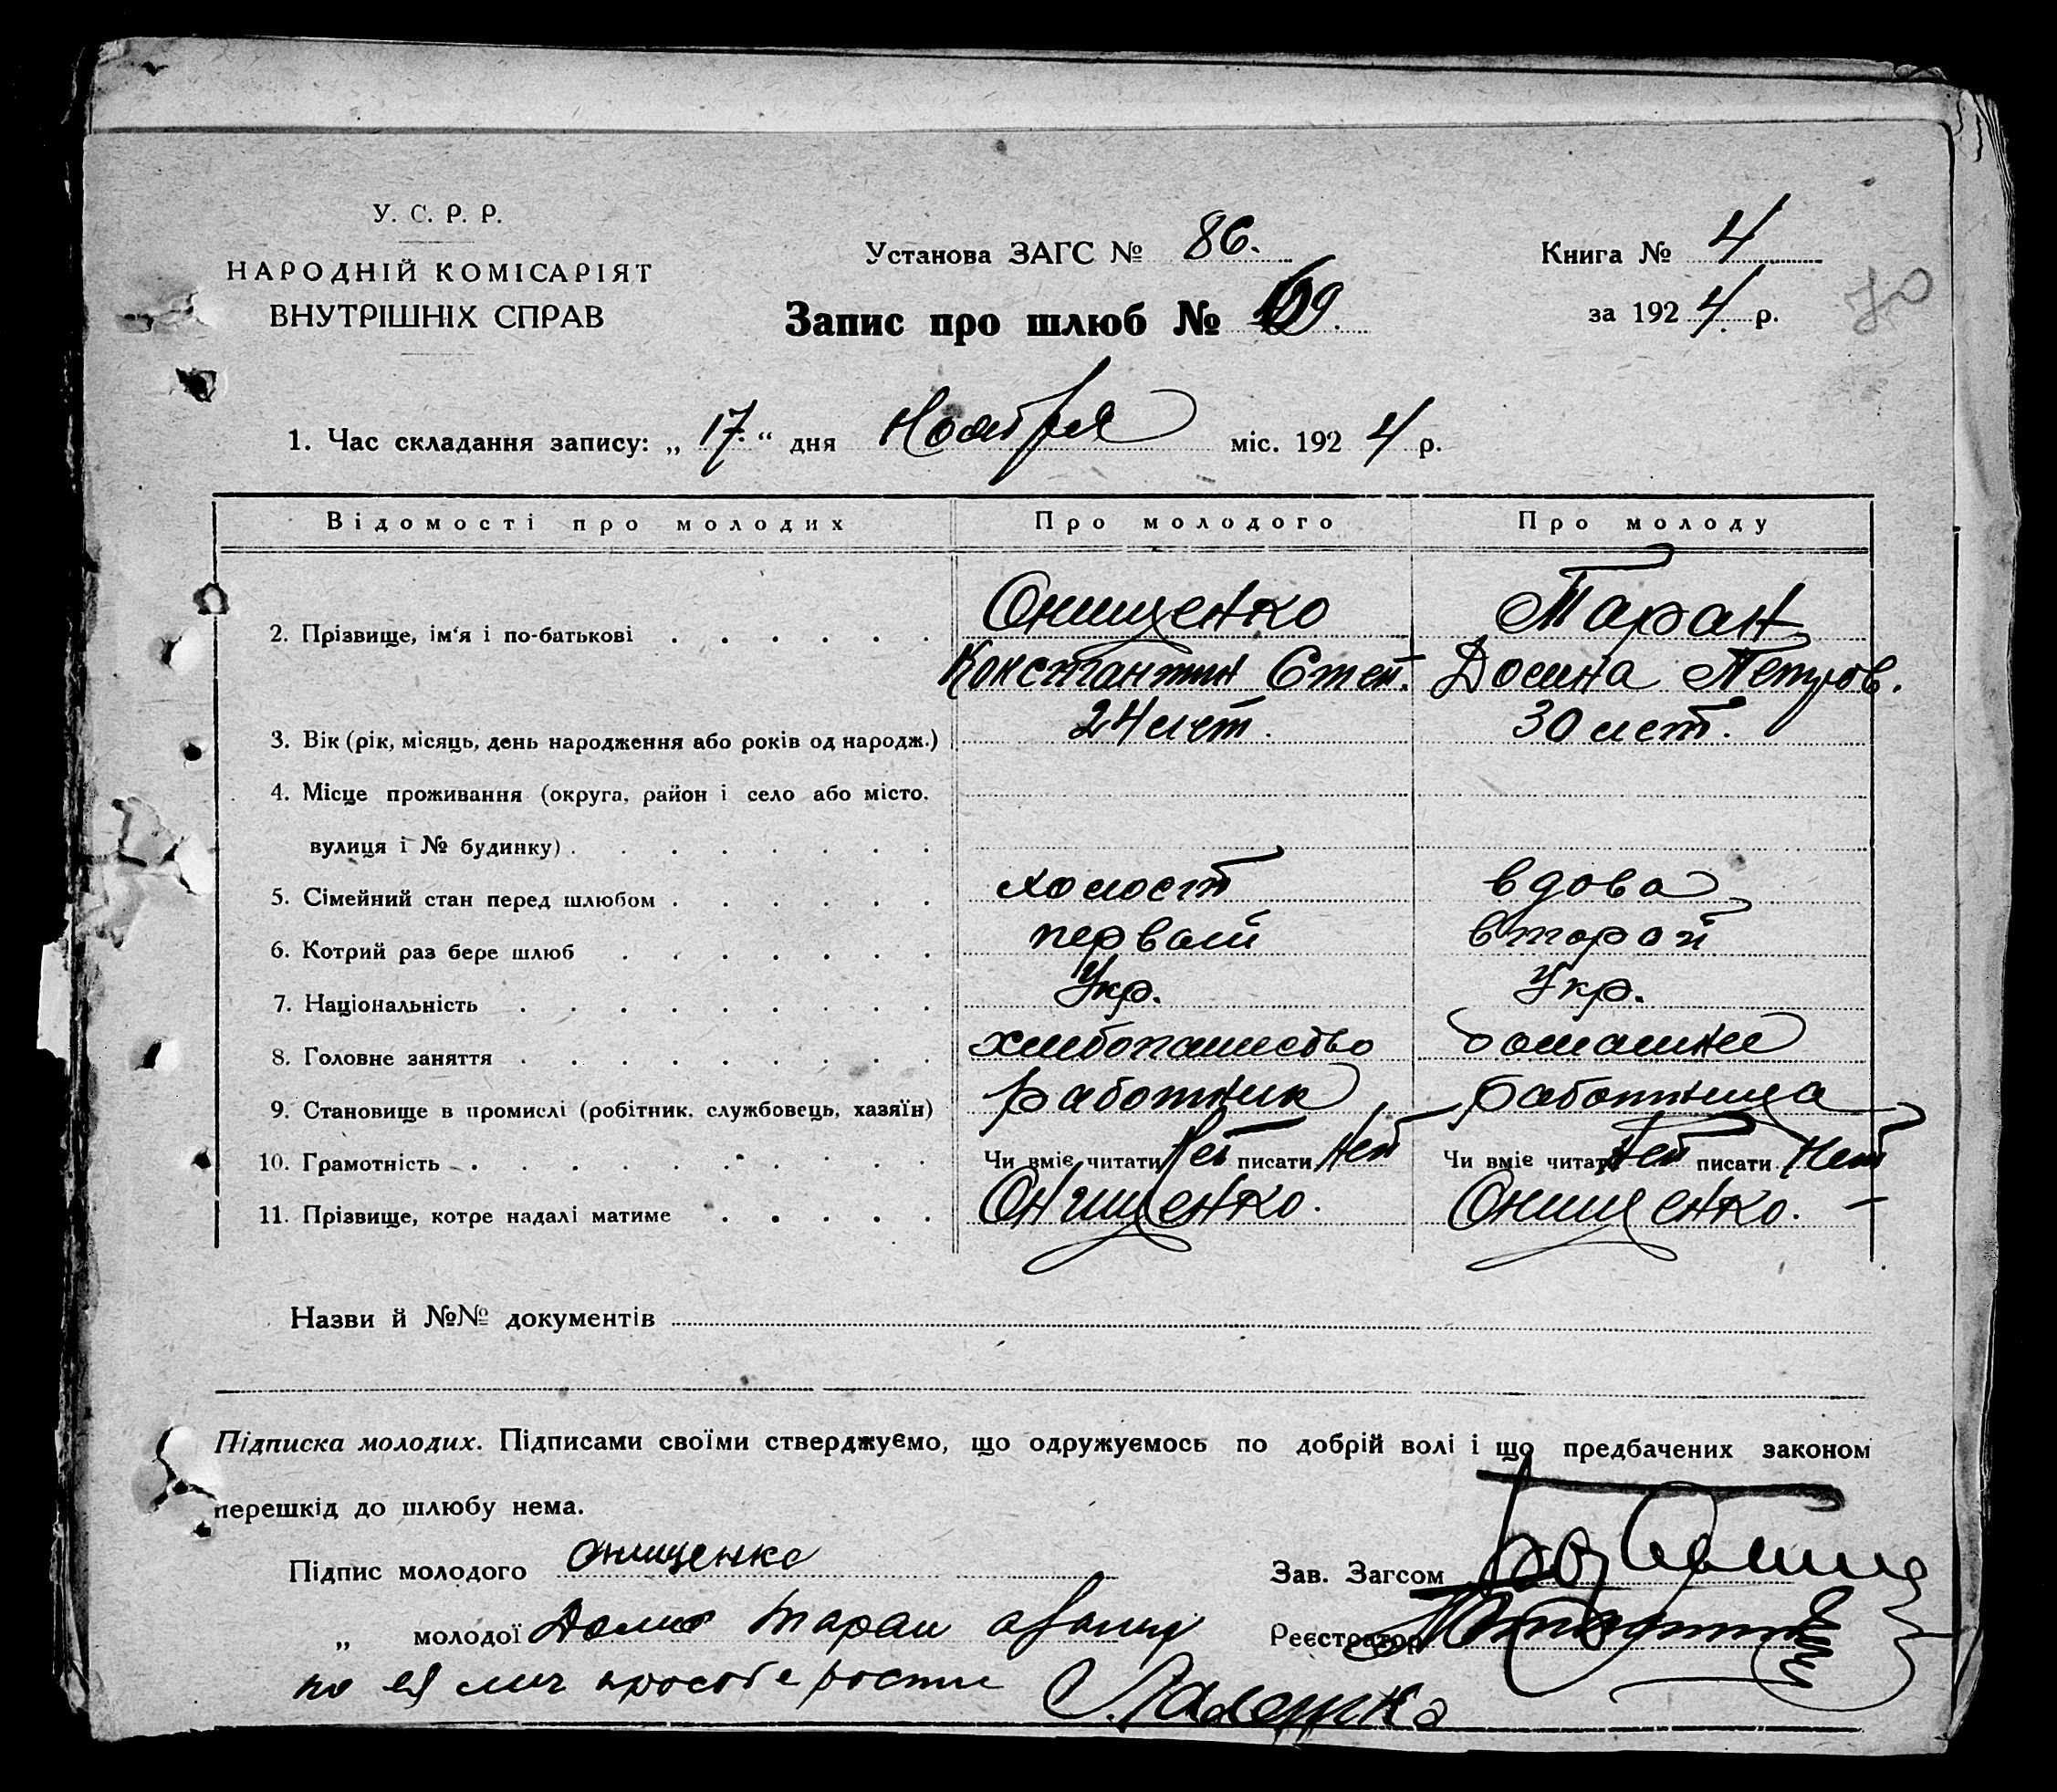 У. С. Р. Р.
НАРОДНІЙ КОМІСАРІЯТ
ВНУТРІШНІХ СПРАВ
Установа ЗАГС № 86.
Запис про шлюб № 69.
Книга № 4
за 1924 р.
70
1. Час складання запису: „17" дня Ноября міс. 1924 р.
Відомості про молодих Про молодого Про молоду
2. Прізвище, ім'я і по-батькові Онищенко Таран
Константин Степ. Домна Петров.
3. Вік (рік, місяць, день народження або років од народж.) 24 лет. 30 лет.
4. Місце проживання (округа, район і село або місто,
вулиця і № будинку)
5. Сімейний стан перед шлюбом холост вдова
6. Котрий раз бере шлюб первый второй
7. Національність Укр. Укр.
8. Головне заняття хлебопашество домашнее
9. Становище в промислі (робітник, службовець, хазяїн) работник работница
10. Грамотність Чи вміє читати Нет писати Нет Чи вміє читати Нет писати Нет
11. Прізвище, котре надалі матиме Онищенко. Онищенко.
Назви й №№ документів
Підписка молодих. Підписами своїми стверджуємо, що одружуємось по добрій волі і що предбачених законом
перешкід до шлюбу нема.
Підпис молодого онищенко
Зав. Загсом
„ молодої Таран
Реєстратор
по ея лич просьбе